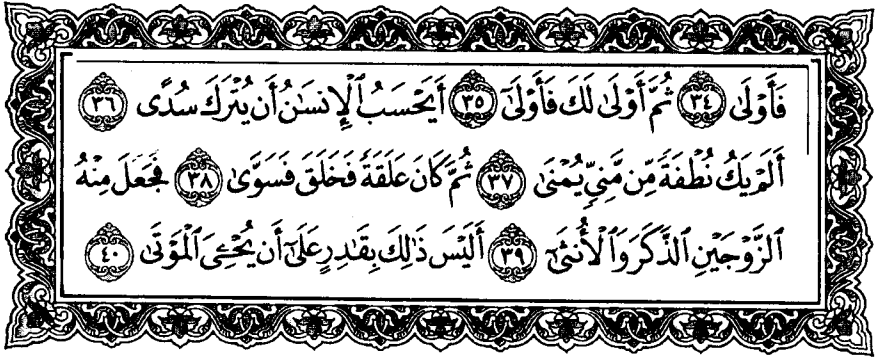 فَأَوْلَىٰ ٣٤ ثُمَّ أَوْلَىٰ لَكَ فَأَوْلَىٰٓ ٣٥ أَيَحْسَبُ ٱلْإِنسَٰنُ أَن يُتْرَكَ سُدًى ٣٦
أَلَمْ يَكُ نُطْفَةً مِّن مَّنِىٍّ يُمْنَىٰ ٣٧ ثُمَّ كَانَ عَلَقَةً فَخَلَقَ فَسَوَّىٰ ٣٨ فَجَعَلَ مِنْهُ
ٱلزَّوْجَيْنِ ٱلذَّكَرَ وَٱلْأُنثَىٰٓ ٣٩ أَلَيْسَ ذَٰلِكَ بِقَٰدِرٍ عَلَىٰٓ أَن يُحْـِۧىَ ٱلْمَوْتَىٰ ٤٠